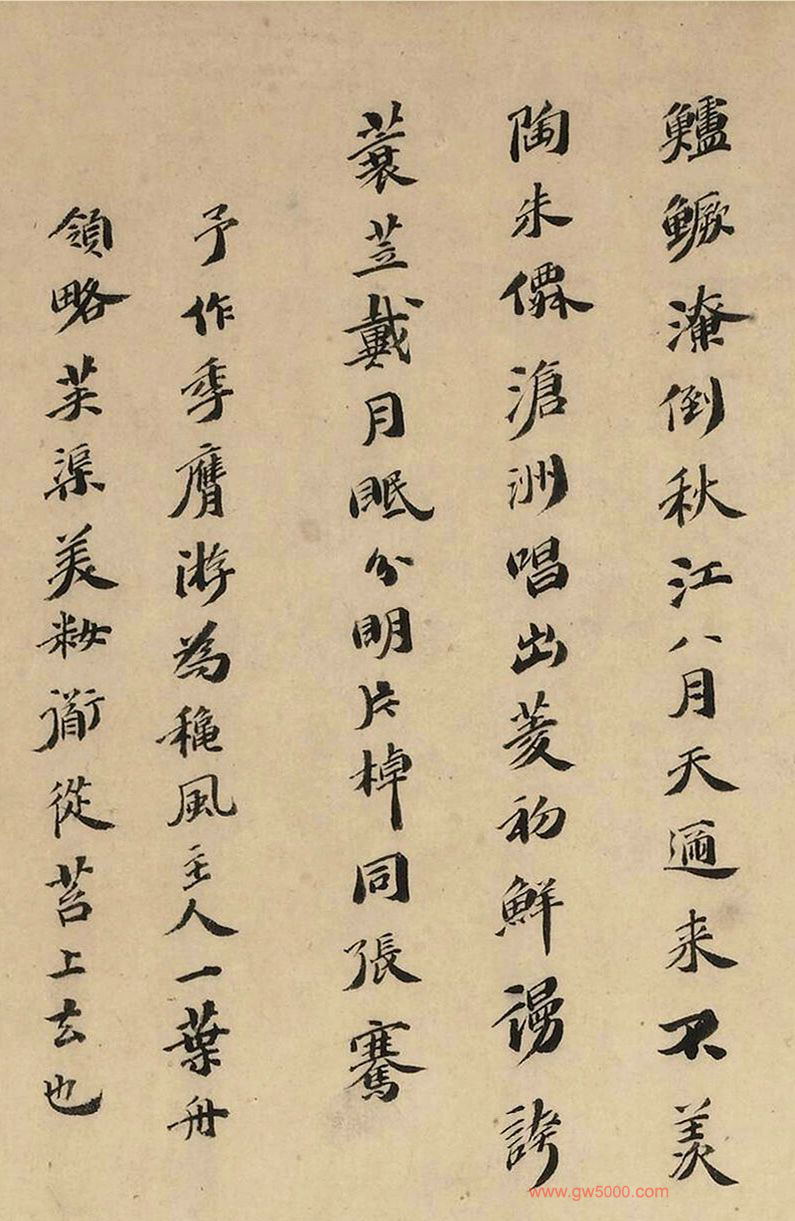 鱸鱖潦倒秋江八月天邇来不羡
陶朱僊滄洲唱出菱初鮮謾誇
蓑苙戴月眠分明片棹同張騫
予作季膺游為穐風主人一葉舟
領略芙渠美籹衜從苕上去也
www.gw5000.com